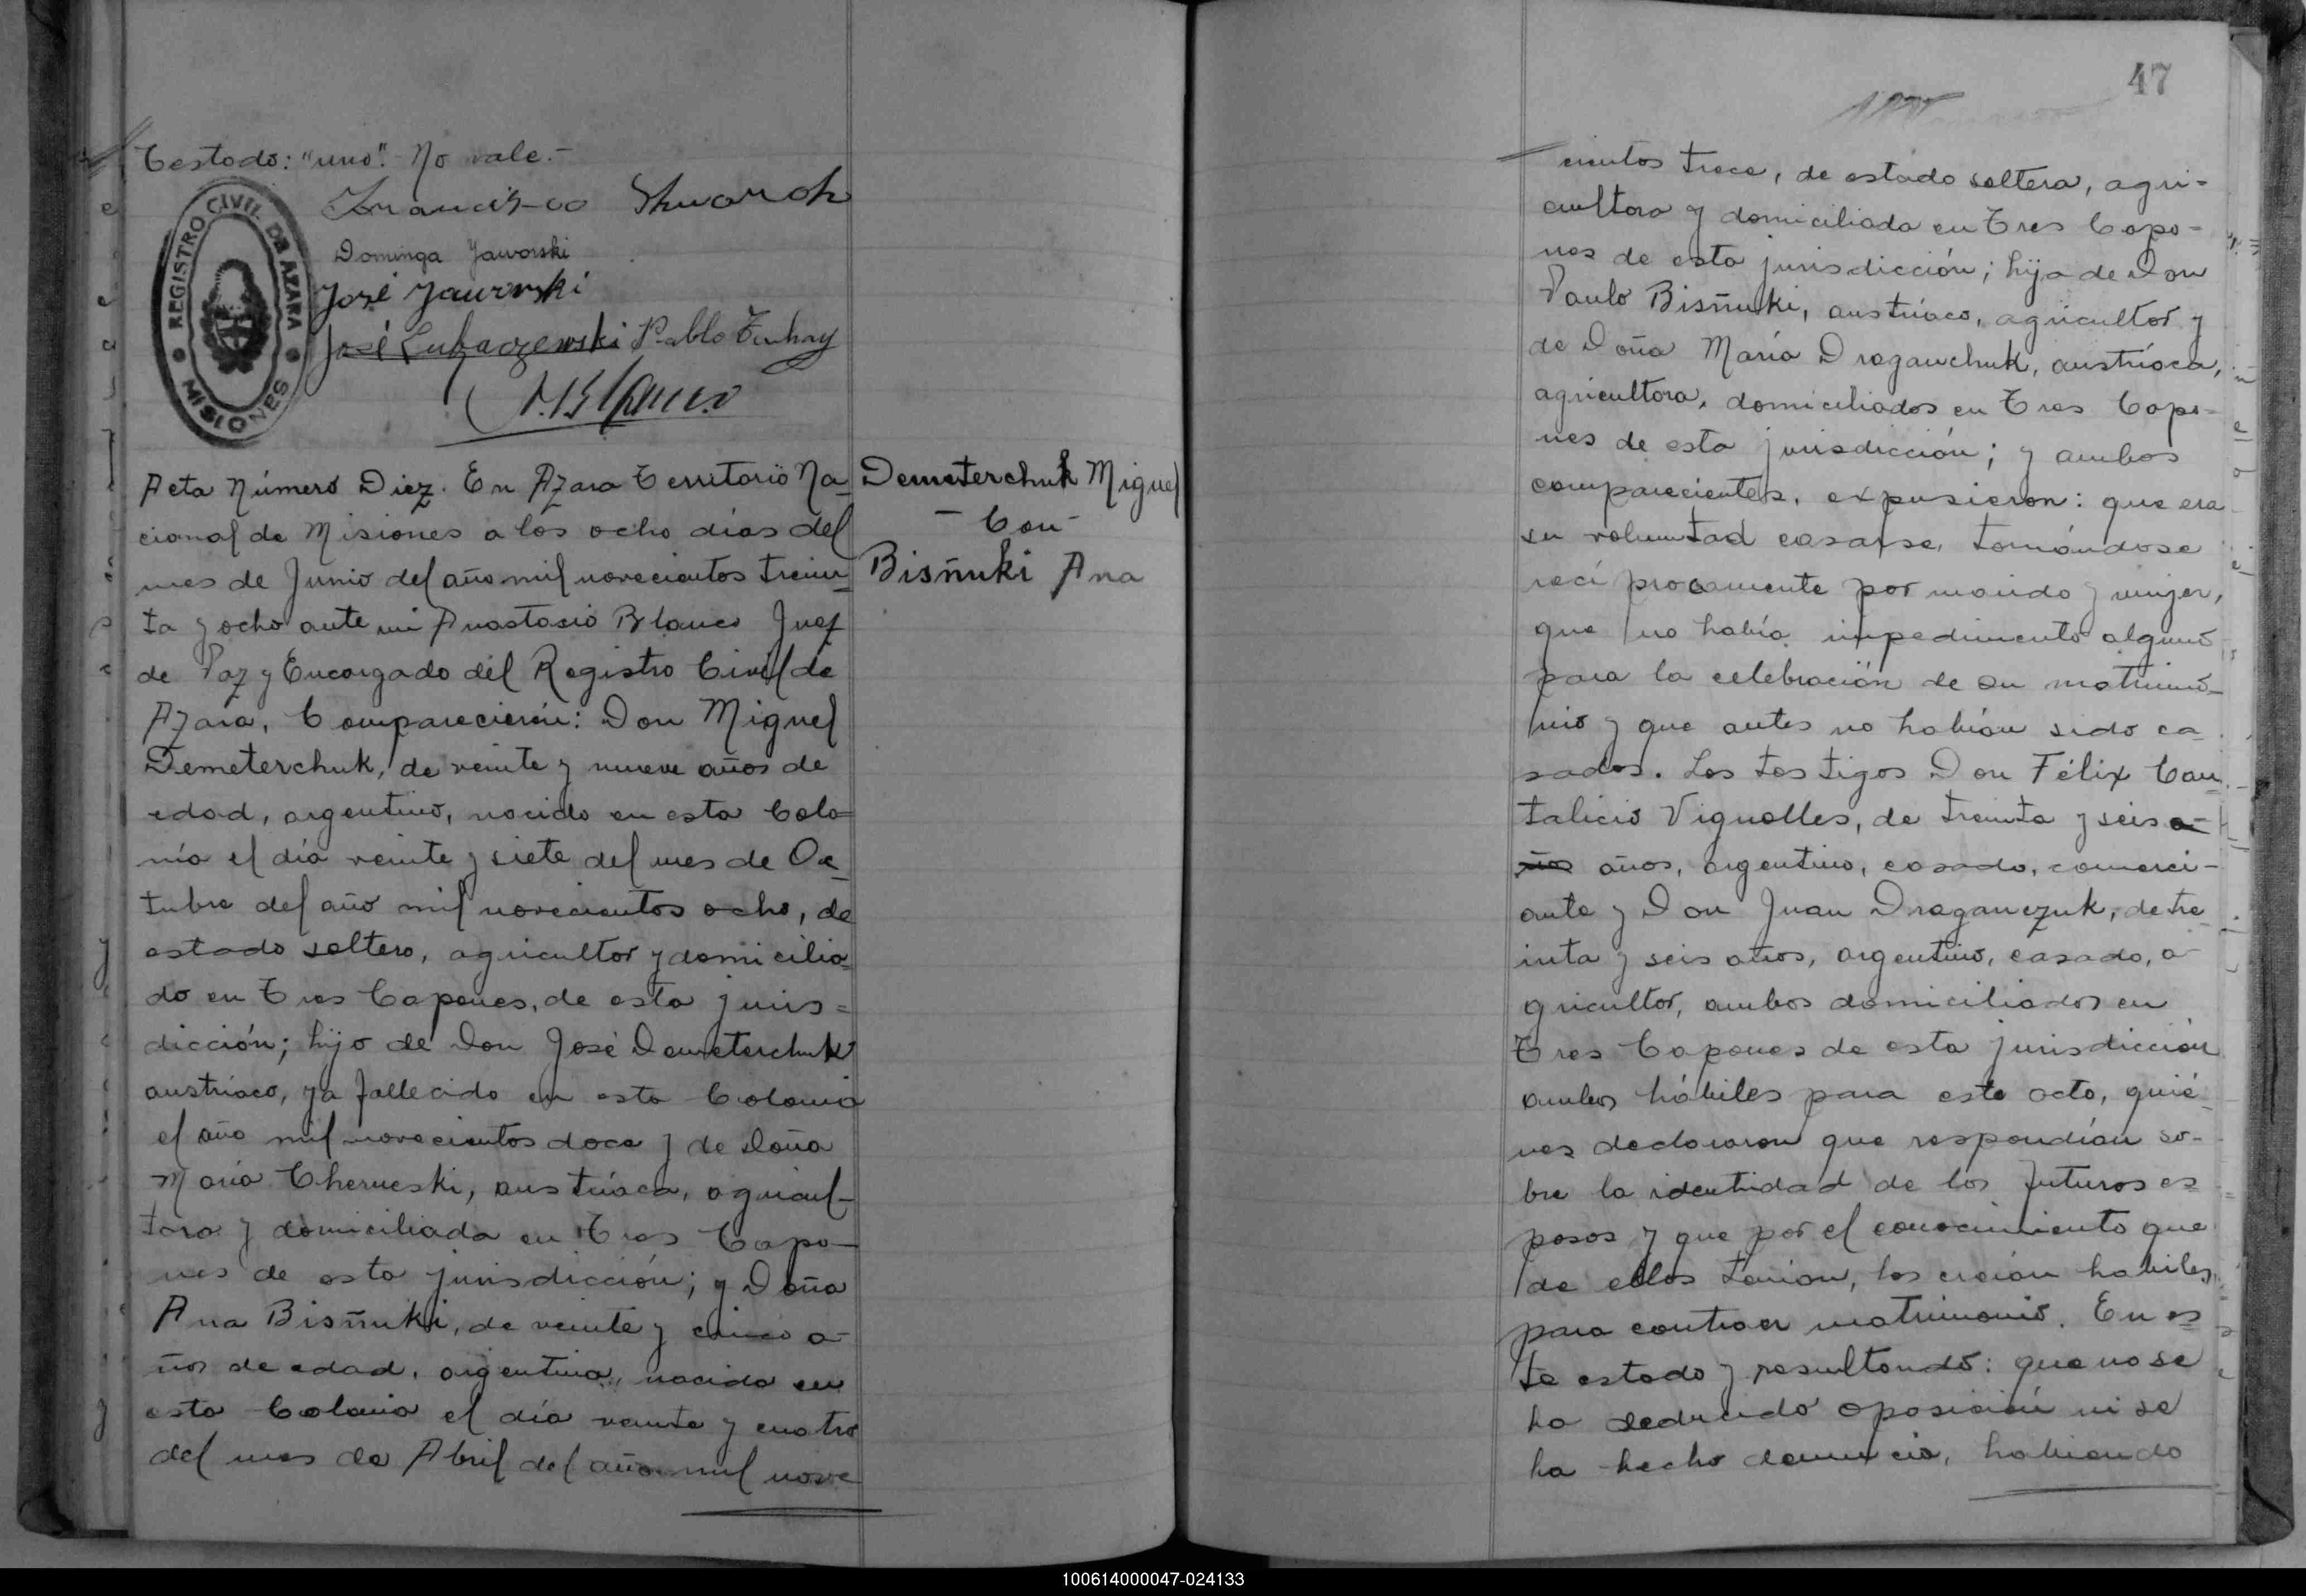 Testado: "uno". No vale.-
Francisco
Dominga Jaworski
José Jaworski
José Lukaszewski Pablo
REGISTRO CIVIL DE AZARA
MISIONES
Acta Número Diez. En Azara Territorio Na-
cional de Misiones a los ocho días del
mes de Junio del año mil novecientos trein-
ta y ocho ante mi Anastasio Blanco Juez
de Paz y Encargado del Registro Civil de
Azara, Comparecierón: Don Miguel
Demeterchuk, de veinte y nueve años de
edad, argentino, nacido en esta Colo=
nia el día veinte y siete del mes de Oc-
tubre del año mil novecientos ocho, de
estado soltero, agricultor y domicilia-
do en Tres Capones, de esta juris=
dicción; hijo de Don José Demeterchuk
austriaco, ya fallecido en esta Colonia
el año mil novecientos doce y de Doña
María Cherneski, austríaca, agricul-
tora y domiciliada en Tres Capo-
nes de esta jurisdicción; y Doña
Ana Bisñuki, de veinte y cinco a-
ños de edad, argentina, nacida en
esta Colonia el día veinte y cuatro
del mes de Abril del año mil nove
Demeterchuk Miguel
- Con -
Bisñuki Ana
47
cientos trece, de estado soltera, agri-
cultora y domiciliada en Tres Capo-
nes de esta jurisdicción; hija de Don
Paulo Bisñuki, austríaco, agricultor y
de Doña María Draganchuk, austríaca,
agricultora, domiciliados en Tres Capo-
nes de esta jurisdicción; y ambos
comparecientes, expusieron: que era
su voluntad casarse, tomándose
recíprocamente por marido y mujer,
que no había impedimento alguno
para la celebración de su matrimo-
nio y que antes no habían sido ca-
sados. Los testigos Don Félix Can-
talicio Vignolles, de treinta y seis a-
ños años, argentino, casado, comerci-
ante y Don Juan Draganczuk, de tre-
inta y seis años, argentino, casado, a-
gricultor, ambos domiciliados en
Tres Capones de esta jurisdicción
ambos hábiles para este acto, quié-
nes declararon que respondían so-
bre la identidad de los futuros es-
posos y que por el conocimiento que
de ellos tenían, los creían habiles,
para contraer matrimonio. En es-
te estado y resultando: que no se
ha deducido oposición ni se
ha hecho denuncia, habiendo
100614000047-024133